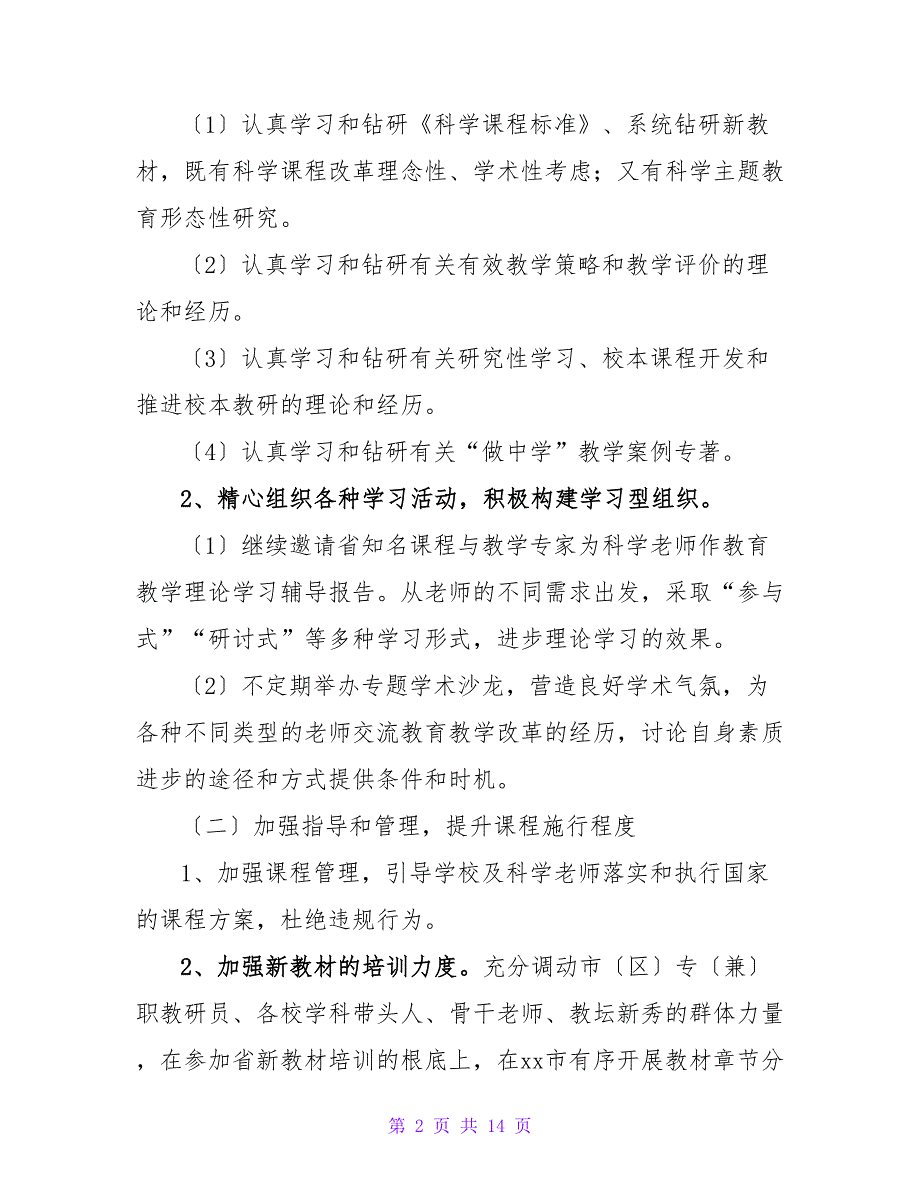 〔1〕认真学习和钻研《科学课程标准》、系统钻研新教
材，既有科学课程改革理念性、学术性考虑；又有科学主题教
育形态性研究。
〔2〕认真学习和钻研有关有效教学策略和教学评价的理
论和经历。
〔3〕认真学习和钻研有关研究性学习、校本课程开发和
推进校本教研的理论和经历。
〔4〕认真学习和钻研有关“做中学”教学案例专著。
2、精心组织各种学习活动，积极构建学习型组织。
〔1〕继续邀请省知名课程与教学专家为科学老师作教育
教学理论学习辅导报告。从老师的不同需求出发，采取“参与
式”“研讨式”等多种学习形式，进步理论学习的效果。
〔2〕不定期举办专题学术沙龙，营造良好学术气氛，为
各种不同类型的老师交流教育教学改革的经历，讨论自身素质
进步的途径和方式提供条件和时机。
〔二〕加强指导和管理，提升课程施行程度
1、加强课程管理，引导学校及科学老师落实和执行国家
的课程方案，杜绝违规行为。
2、加强新教材的培训力度。充分调动市〔区〕专〔兼〕
职教研员、各校学科带头人、骨干老师、教坛新秀的群体力量
，在参加省新教材培训的根底上，在xx市有序开展教材章节分
第 2 页 共 14 页